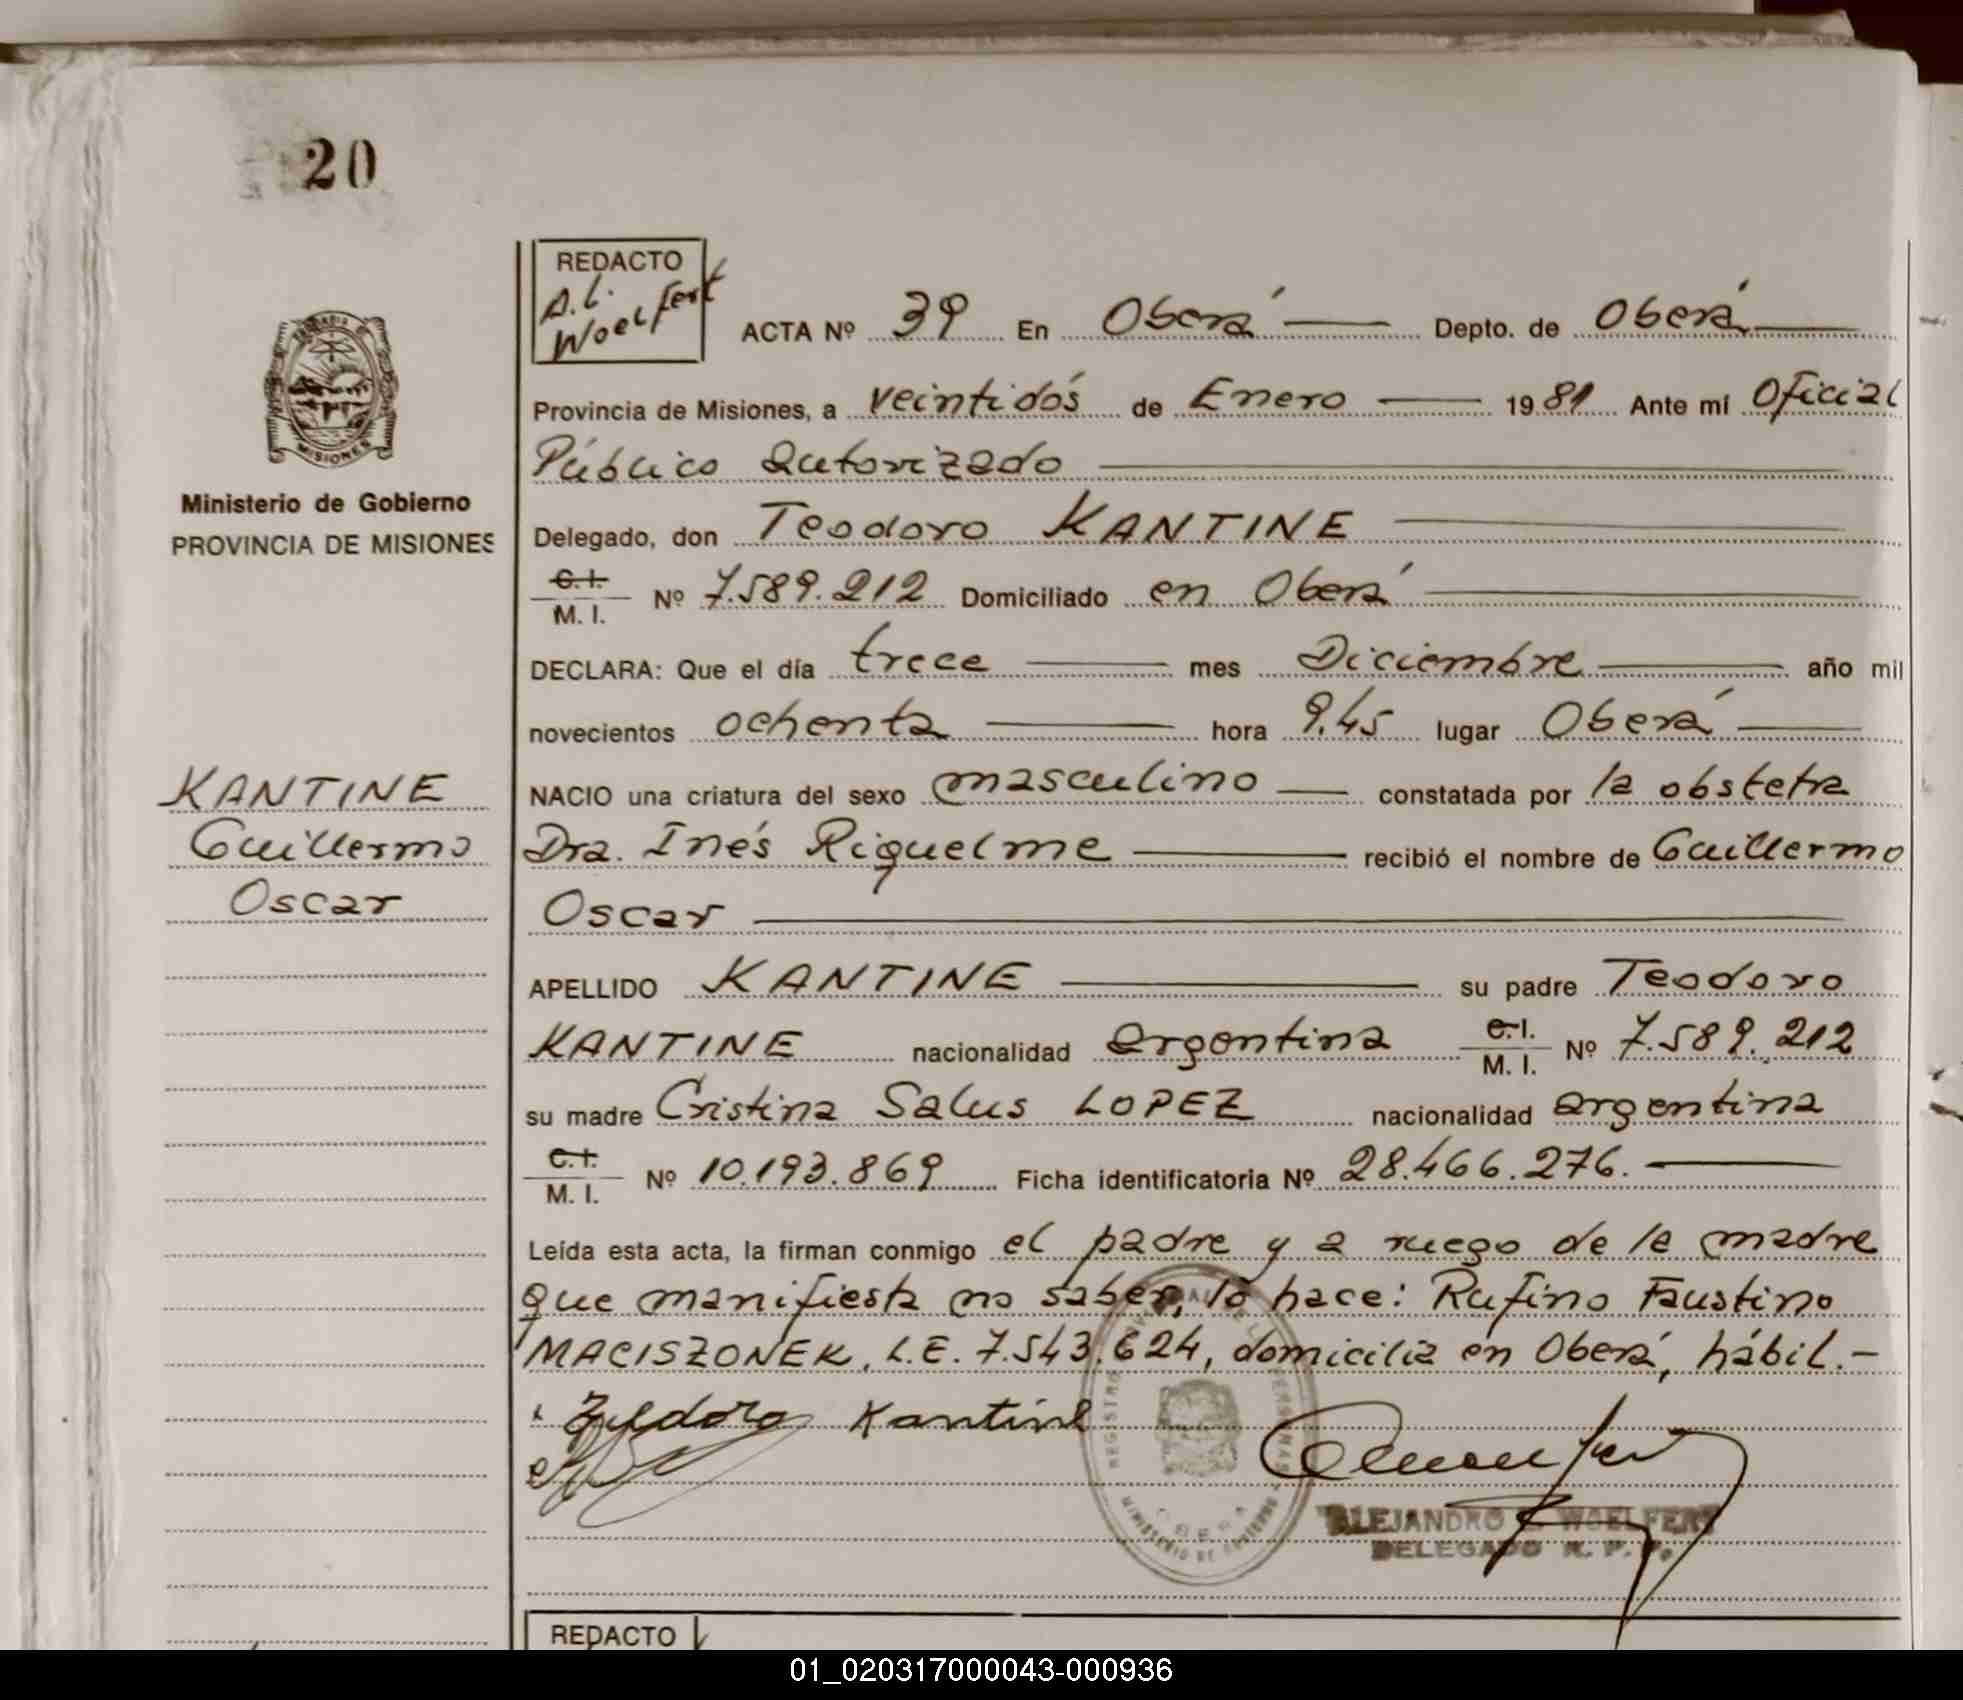 20
REDACTO
A.L.
Woelfert
ACTA Nº 39 En Oberá Depto. de Oberá
Provincia de Misiones, a veintidós de Enero 1981 Ante mí Oficial
Público autorizado
MISIONES
Ministerio de Gobierno
PROVINCIA DE MISIONES
Delegado, don Teodoro KANTINE
C.I.
M. I. Nº 7.589.212 Domiciliado en Oberá
DECLARA: Que el día trece mes Diciembre año mil
novecientos ochenta hora 9.45 lugar Oberá
KANTINE
Guillermo
Oscar
NACIO una criatura del sexo masculino constatada por la obstetra
Dra. Inés Riquelme recibió el nombre de Guillermo
Oscar
APELLIDO KANTINE su padre Teodoro
KANTINE nacionalidad argentina C.I. M. I. Nº 7.589.212
su madre Cristina Salus LOPEZ nacionalidad argentina
C.I.
M. I. Nº 10.193.869 Ficha identificatoria Nº 28.466.276.
Leída esta acta, la firman conmigo el padre y a ruego de la madre
que manifiesta no saber, lo hace: Rufino Faustino
MACISZONEK, L.E. 7.543.624, domicilia en Oberá, hábil.-
Kantine
ALEJANDRO L. WOELFERT
DELEGADO R. P. P.
REDACTO
01_020317000043-000936